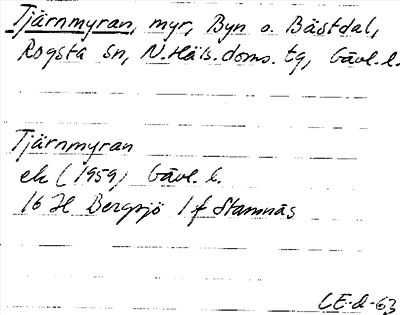 Tjärnmyran, myr, Byn o. Bästdal,
Rogsta sn, N. Häls. doms. tg, Gävl. l.
Tjärnmyran
ek (1959) Gävl. l.
16 H Bergsjö 1 f Stamnäs
CE-d-63